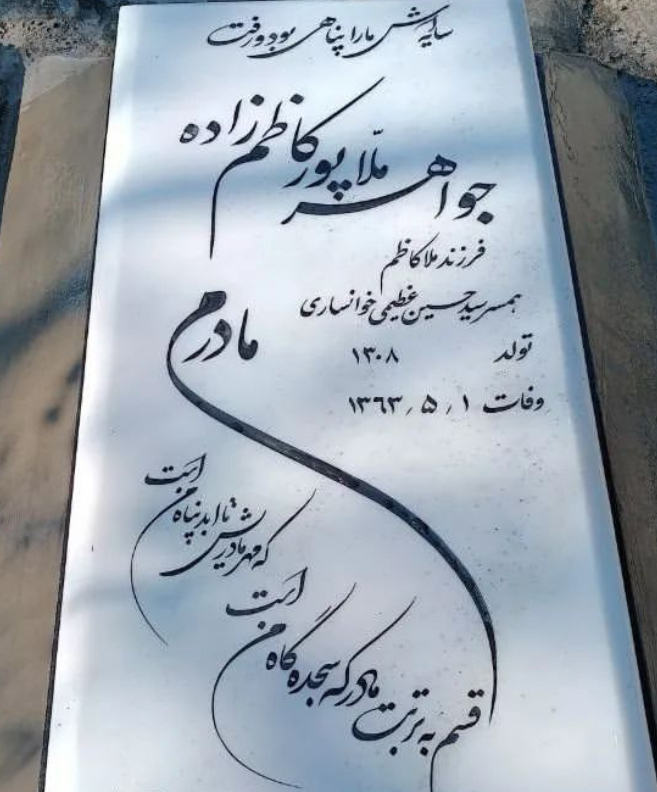 سایه‌اش ما را پناهی بود و رفت
جواهر ملّا پور کاظم زاده
فرزند ملا کاظم
همسر سید حسین عظیمی خوانساری
تولد ۱۳۰۸
وفات ۱ / ۵ / ۱۳۶۳
مادرم
قسم به تربت مادر که سجده گاه من است
که مهر مادریش تا ابد پناه من است